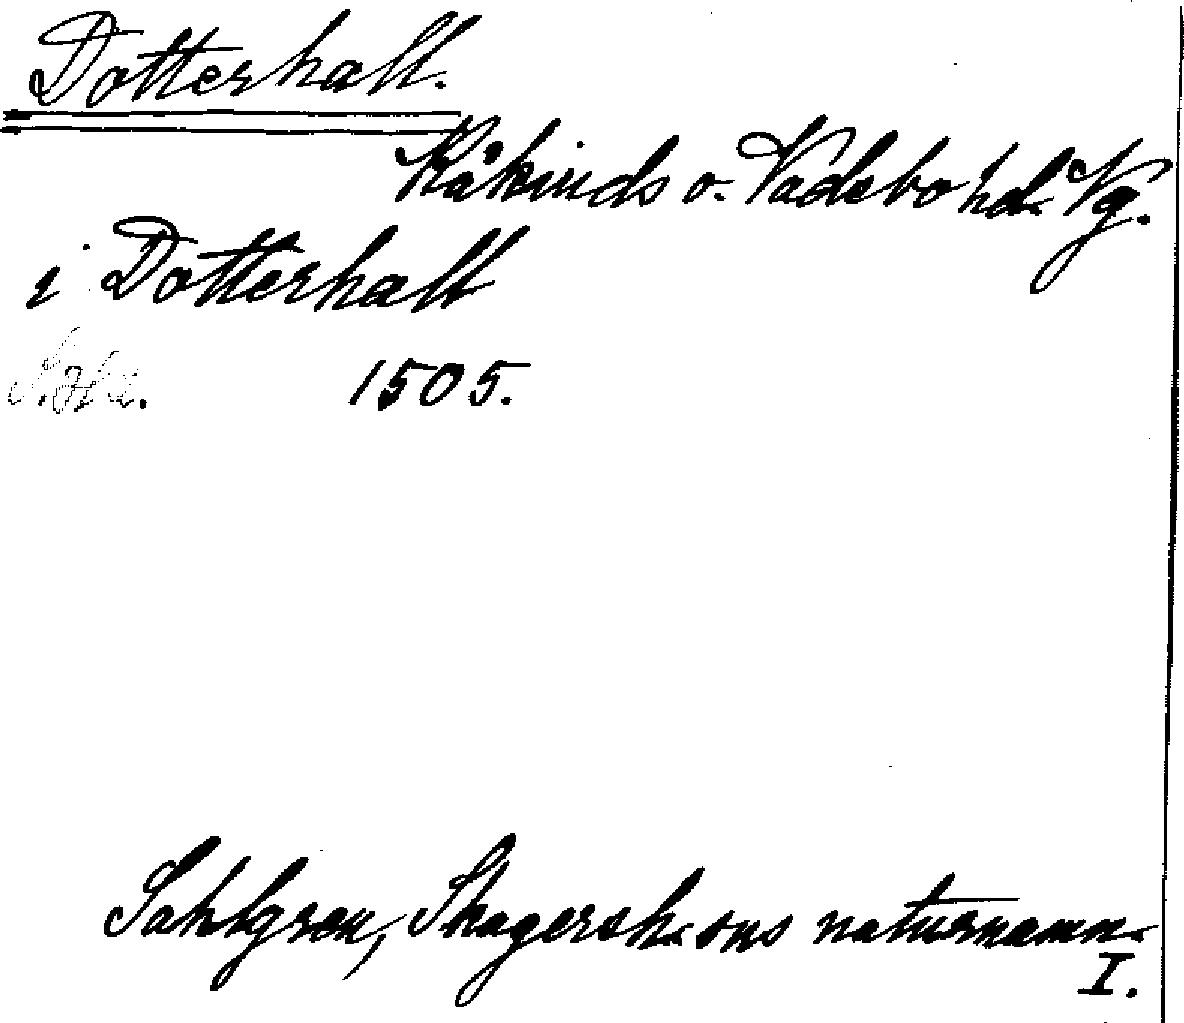 Dotterhall.
Kåkinds o. Vadsbo hd. Vg.
i Dotterhalt
1505.
Sahlgren, Skagersh:sns naturnamn.
I.